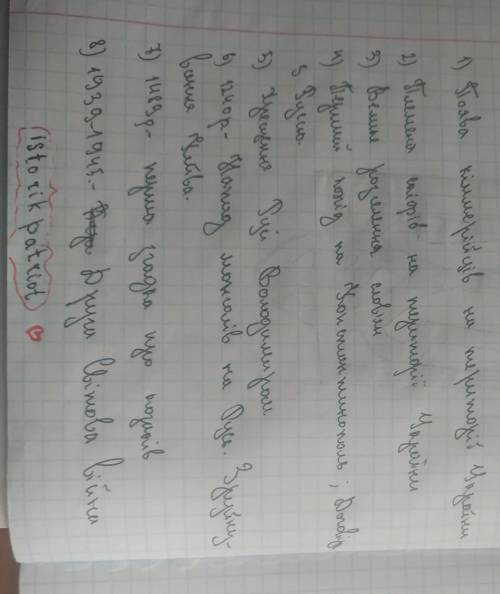 1) Поява кіммерійців на території України
2) Племена скіфів на території України
3) Велике розселення слов'ян
4) Перший похід на Константинополь; Договір
з Руссю
5) Хрещення Русі Володимиром
6) 1240р.- Напад монголів на Русь. Зруйну-
вання Києва.
7) 1489р.- перша згадка про козаків
8) 1939-1945.- Друга Світова війна
(istorikpatriot)